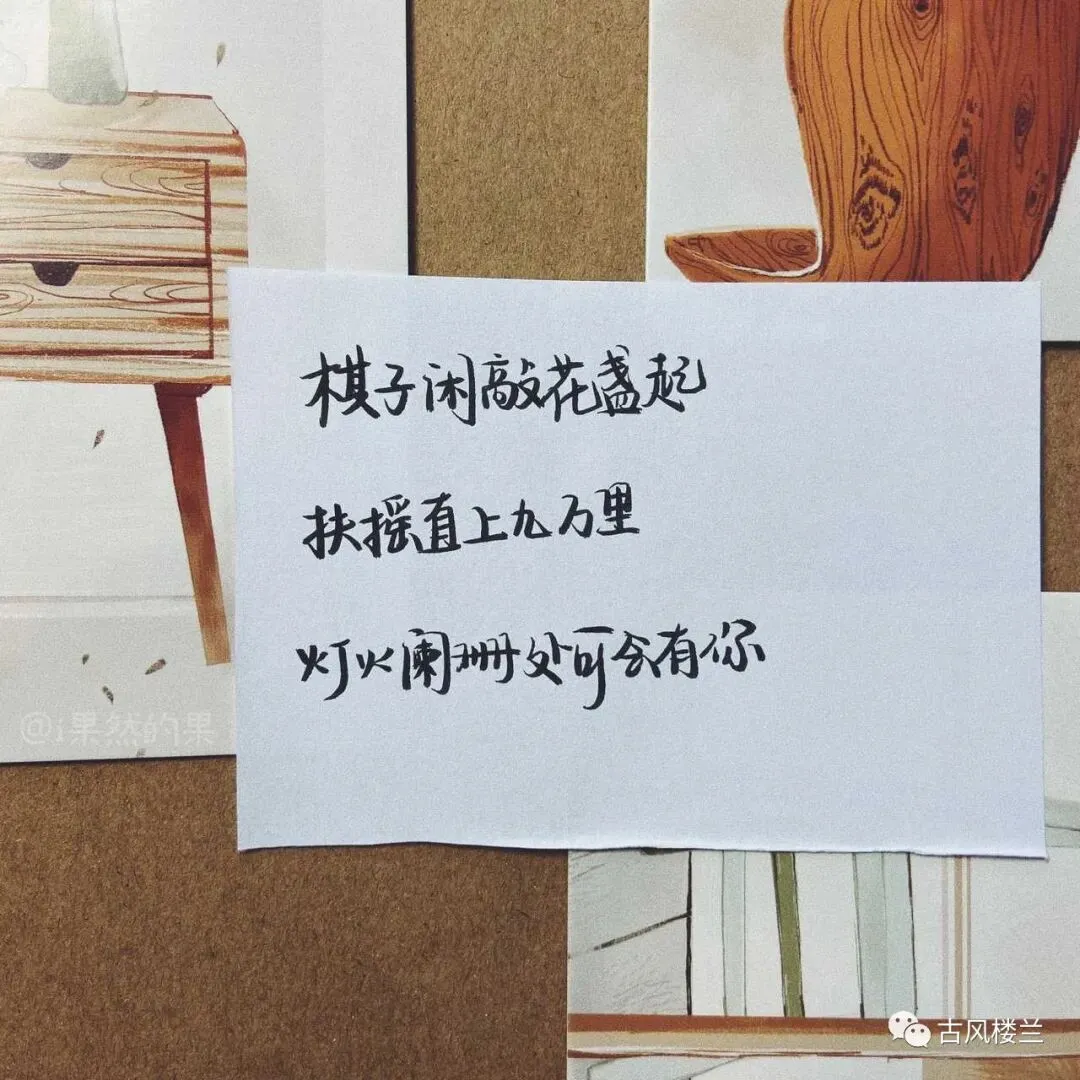 棋子闲敲花盏起
扶摇直上九万里
灯火阑珊处可会有你
@i果然的果
古风楼兰